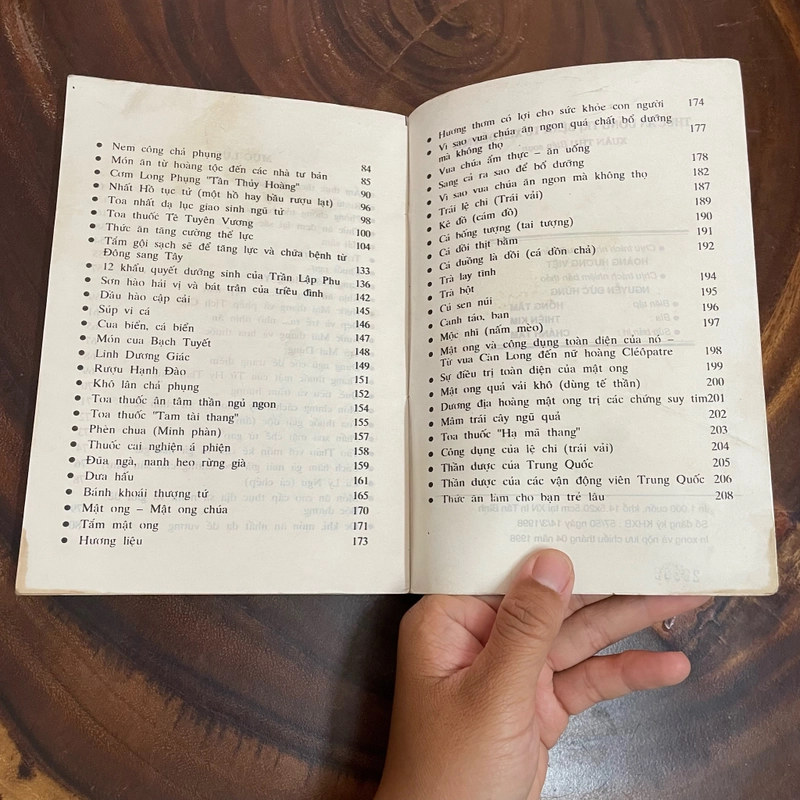 Nem công chả phụng 84
Món ăn từ hoàng tộc đến các nhà tư bản 85
Cơm Long Phụng "Tần Thủy Hoàng" 90
Nhất Hồ tục tử (một hồ hay bầu rượu lạt) 96
Toa nhất dạ lục giao sinh ngũ tử 98
Toa thuốc Tề Tuyên Vương 100
Thức ăn tăng cường thể lực 104
Tắm gội sạch sẽ để tăng lực và chữa bệnh từ
Đông sang Tây 133
12 khẩu quyết dưỡng sinh của Trần Lập Phu 136
Sơn hào hải vị và bát trân của triều đình 142
Dầu hào cập cải 145
Súp vi cá 146
Cua biển, cá biển 147
Món cua Bạch Tuyết 148
Linh Dương Giác 149
Rượu Hạnh Đào 151
Khô lân chả phụng 152
Toa thuốc ăn tâm thần ngủ ngon 154
Toa thuốc "Tam tài thang" 155
Phèn chua (Minh phàn) 157
Thuốc cai nghiện á phiện 158
Đũa ngà, nanh heo rừng già 159
Dưa hấu 161
Bánh khoái thượng tứ 165
Mật ong – Mật ong chúa 170
Tắm mật ong 171
Hương liệu 173
Hương thơm có lợi cho sức khỏe con người 174
Vì sao vua chúa ăn ngon quá chất bổ dưỡng
mà không thọ 177
Vua chúa ẩm thực – ăn uống 178
Sang cả ra sao để bổ dưỡng 182
Vì sao vua chúa ăn ngon mà không thọ 187
Trái lệ chi (Trái vải) 189
Kê đồ (cám dỗ) 190
Cá bống tượng (tai tượng) 191
Cá dồi thịt bằm 192
Cá duồng là dồi (cá dồn chả)
Trà lay tỉnh 194
Trà bột 195
Củ sen núi 196
Canh táo, ban 197
Mộc nhĩ (nấm mèo)
Mật ong và công dụng toàn diện của nó –
Từ vua Càn Long đến nữ hoàng Cléopatre 198
Sự điều trị toàn diện của mật ong 199
Mật ong quả vải khô (dùng tế thần) 200
Dương địa hoàng mật ong trị các chứng suy tim 201
Mâm trái cây ngũ quả 202
Toa thuốc "Hạ mã thang" 203
Công dụng của lệ chi (trái vải) 204
Thần dược của Trung Quốc 205
Thần dược của các vận động viên Trung Quốc 206
Thức ăn làm cho bạn trẻ lâu 208